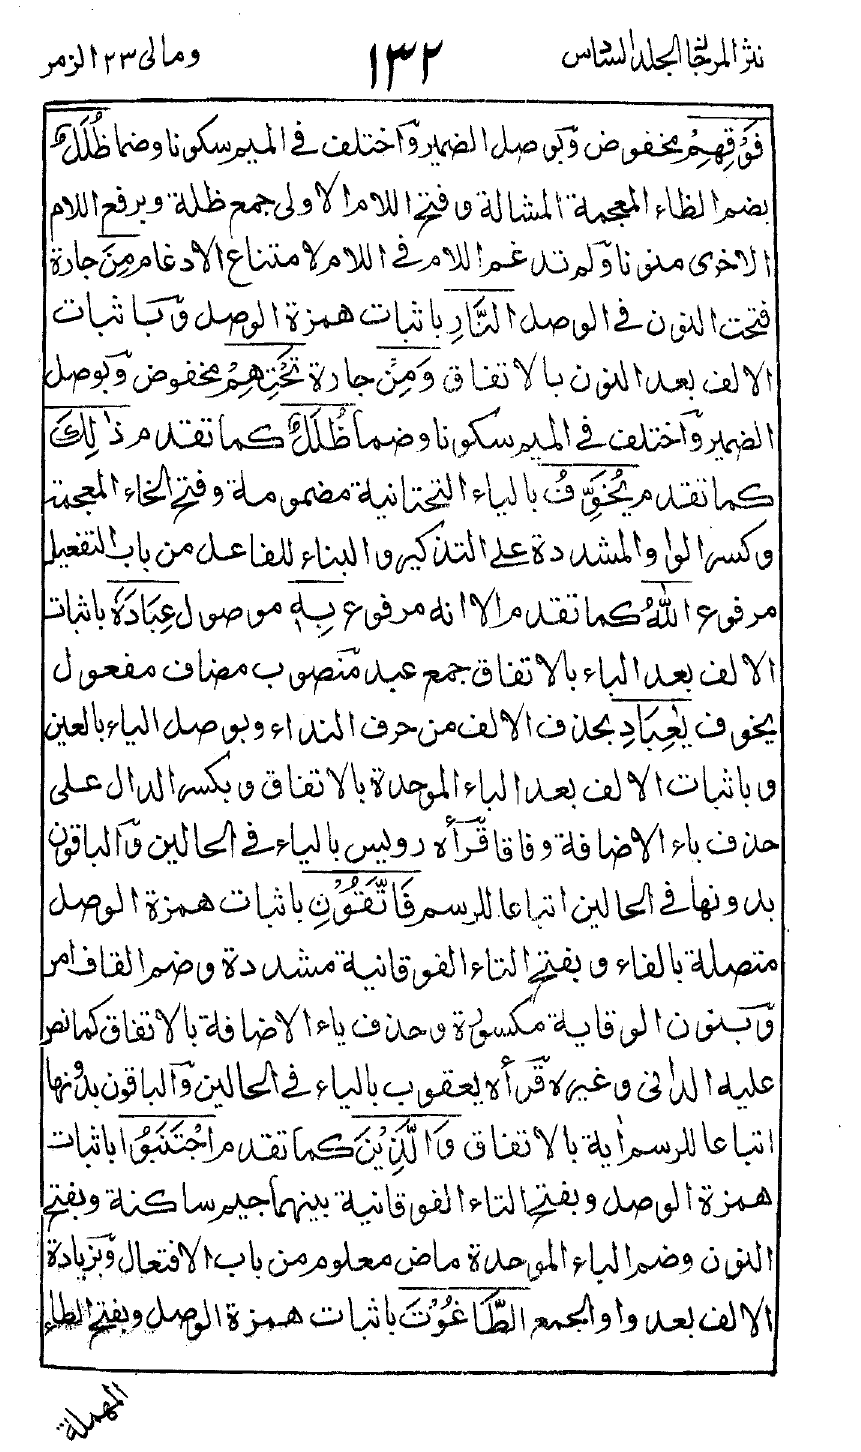 نثر المرجان الجلد السادس ١٣٢ ومالى ٢٣ الزمر
فَوْقِهِمْ مخفوض وبوصل الضمير واختلف في الميم سكونا وضما ظُلَلٌ
بضم الظاء المعجمة المشالة وفتح اللام الاولى جمع ظلة وبرفع اللام
الاخرى منونا ولم تدغم اللام في اللام لامتناع الادغام مِنَ جارة
فتحت النون في الوصل النَّارِ باثبات همزة الوصل وباثبات
الالف بعد النون بالاتفاق وَمِنْ جارة تَحْتِهِمْ مخفوض وبوصل
الضمير واختلف في الميم سكونا وضما ظُلَلٌ كما تقدم ذٰلِكَ
كما تقدم يُخَوِّفُ بالياء التحتانية مضمومة وفتح الخاء المعجمة
وكسر الواو المشددة على التذكير والبناء للفاعل من باب التفعيل
مرفوع اللّٰهُ كما تقدم الا انه مرفوع بِهٖ موصول عِبَادَهٗ باثبات
الالف بعد الباء بالاتفاق جمع عبد منصوب مضاف مفعول
يخوف يٰعِبَادِ بحذف الالف من حرف النداء وبوصل الياء بالعين
وباثبات الالف بعد الباء الموحدة بالاتفاق وبكسر الدال على
حذف ياء الاضافة وفاقا قرأه رويس بالياء في الحالين والباقون
بدونها في الحالين اتباعا للرسم فَاتَّقُوْنِ باثبات همزة الوصل
متصلة بالفاء وبفتح التاء الفوقانية مشددة وضم القاف امر
وبنون الوقاية مكسورة وحذف ياء الاضافة بالاتفاق كما نص
عليه الدانى وغيره قرأه يعقوب بالياء في الحالين والباقون بدونها
اتباعا للرسم اية بالاتفاق وَالَّذِيْنَ كما تقدم اجْتَنَبُوا باثبات
همزة الوصل وبفتح التاء الفوقانية بينهما جيم ساكنة وبفتح
النون وضم الباء الموحدة ماض معلوم من باب الافتعال وبزيادة
الالف بعد واو الجمع الطَّاغُوْتَ باثبات همزة الوصل وبفتح الطاء
المهملة